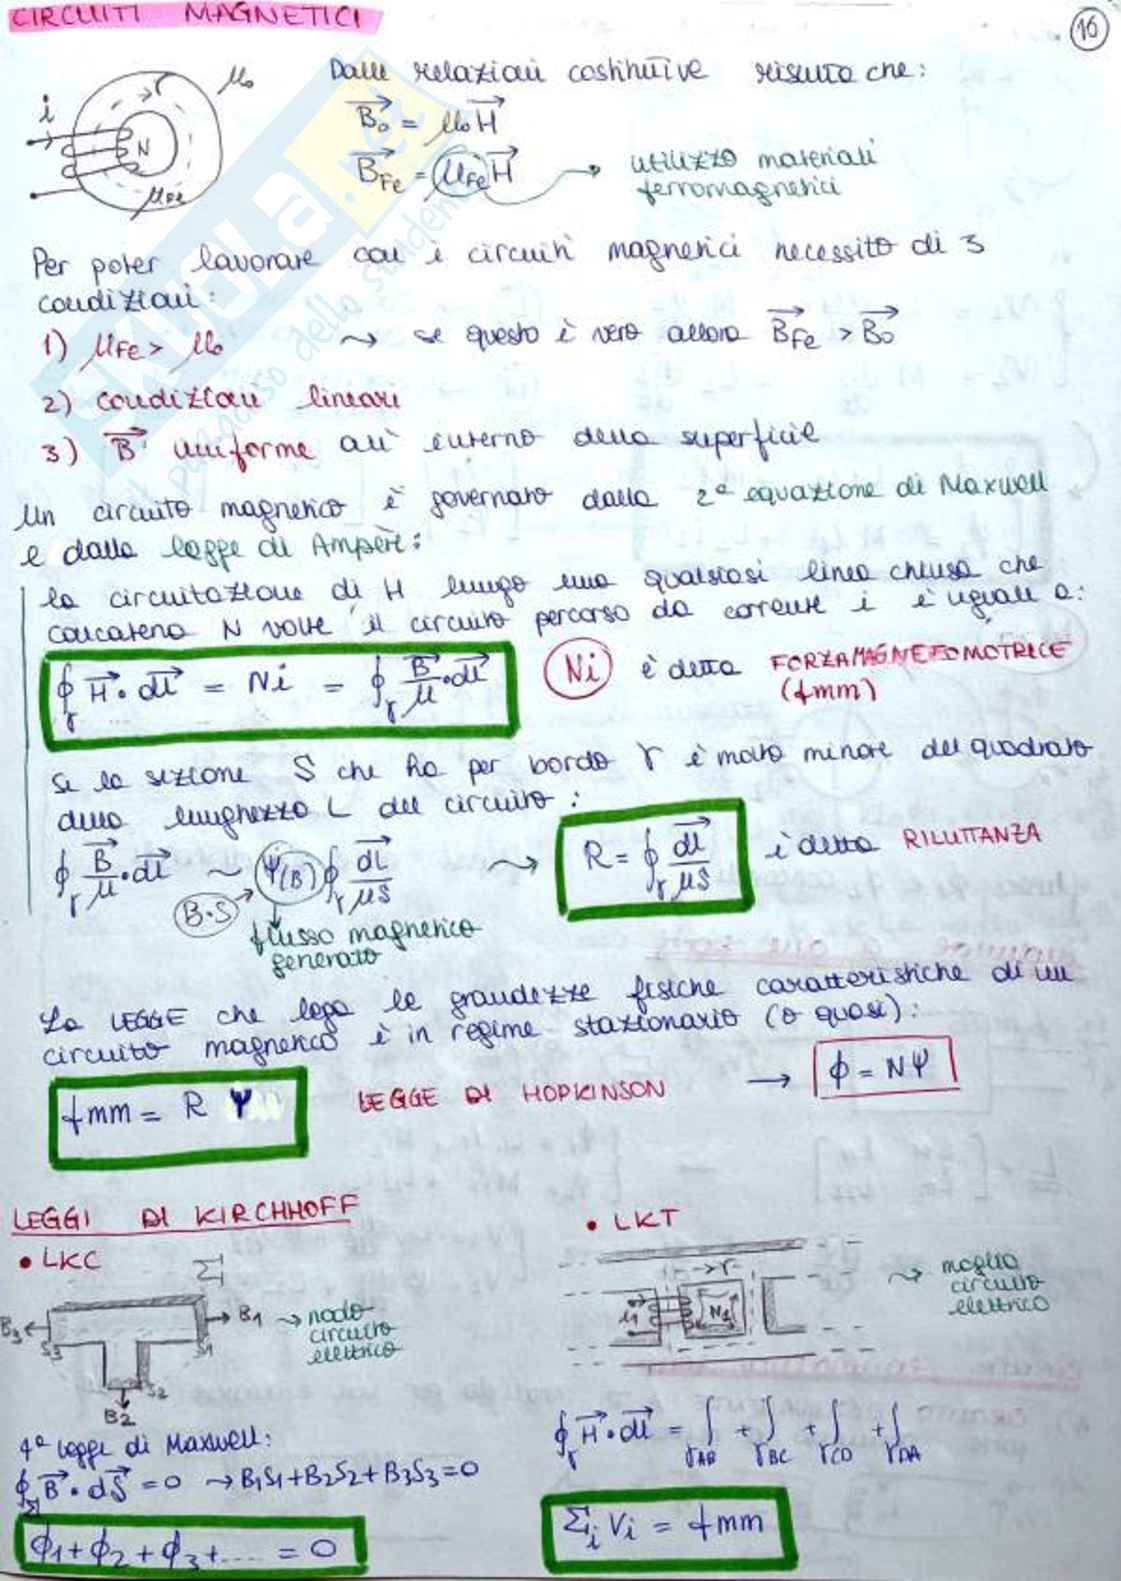 CIRCUITI MAGNETICI
16
i
N
μ₀
μFe
Dalle relazioni costitutive risulta che:
B₀ = μ₀H
BFe = μFeH → utilizzo materiali
ferromagnetici
Per poter lavorare con i circuiti magnetici necessito di 3
condizioni:
1) μFe > μ₀ ⇝ se questo è vero allora BFe > B₀
2) condizioni lineari
3) B uniforme all' interno della superficie
Un circuito magnetico è governato dalla 2ª equazione di Maxwell
e dalla legge di Ampère:
la circuitazione di H lungo una qualsiasi linea chiusa che
concatena N volte il circuito percorso da corrente i è uguale a:
∮γ H · dl = Ni = ∮γ B/μ · dl
Ni è detta FORZA MAGNETOMOTRICE
(fmm)
Se la sezione S che ha per bordo γ è molto minore del quadrato
della lunghezza L del circuito:
∮γ B/μ · dl ~ Ψ(B) ∮γ dl/μS ⇝ R = ∮γ dl/μS è detta RILUTTANZA
B·S
flusso magnetico
generato
La LEGGE che lega le grandezze fisiche caratteristiche di un
circuito magnetico è in regime stazionario (o quasi):
fmm = R Ψ LEGGE DI HOPKINSON → ϕ = NΨ
LEGGI DI KIRCHHOFF
• LKC
Σ
B3 S3 S1 B1 ⇝ nodo
circuito
elettrico
S2
B2
4ª legge di Maxwell:
∮Σ B · dS = 0 → B1S1 + B2S2 + B3S3 = 0
ϕ1 + ϕ2 + ϕ3 + .... = 0
• LKT
γ
⇝ maglia
circuito
elettrico
∮γ H · dl = ∫γAB + ∫γBC + ∫γCD + ∫γDA
Σi Vi = fmm
SKUOLA.net
il paradiso dello studente